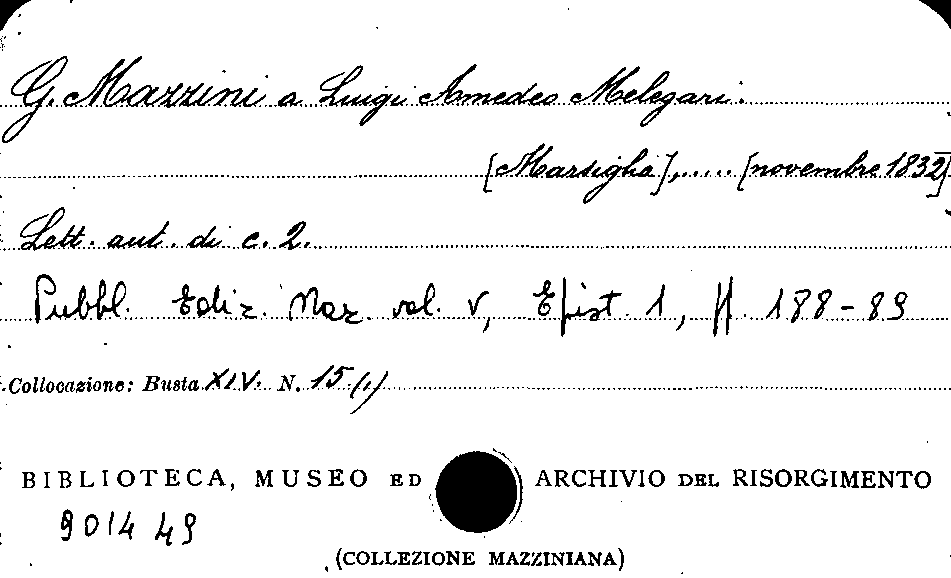 G. Mazzini a Luigi Amedeo Melegari.
[Marsiglia],..... [novembre 1832]
Lett. aut. di c. 2.
Pubbl. Ediz. Naz. vol. V, Epist. 1, pp. 188-89
Collocazione: Busta XIV. N. 15 (1)
BIBLIOTECA, MUSEO ED ARCHIVIO DEL RISORGIMENTO
901449
(COLLEZIONE MAZZINIANA)